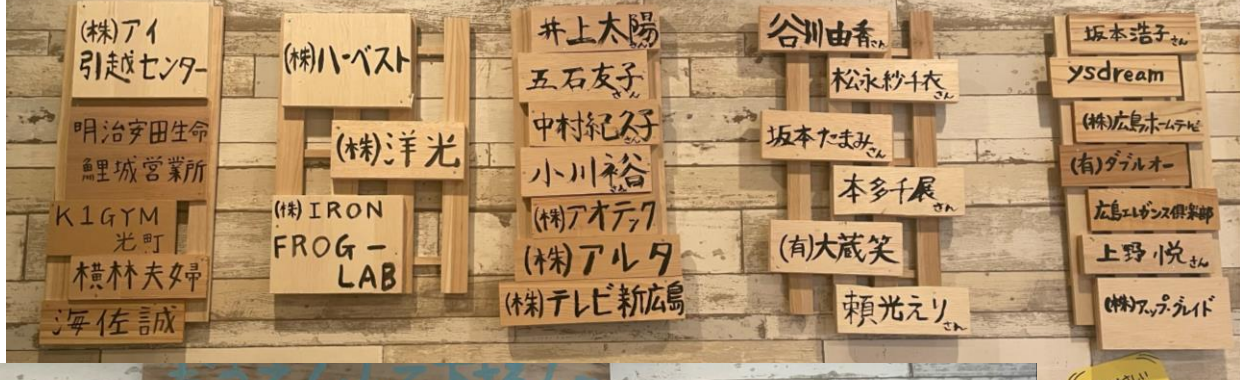 (株)アイ
引越センター
明治安田生命
鯉城営業所
K1GYM
光町
横林夫婦
海佐誠
(株)ハーベスト
(株)洋光
(株)IRON
FROG-
LAB
井上太陽さん
五石友子さん
中村紀久子
小川裕さん
(株)アオテック
(株)アルタ
(株)テレビ新広島
谷川由香さん
松永紗千衣さん
坂本たまみさん
本多千展さん
(有)大蔵笑
頼光えりさん
坂本浩子さん
ysdream
(株)広島ホームテレビ
(有)ダブルオー
広島エレガンス倶楽部
上野悦さん
(株)アップ・グレイド